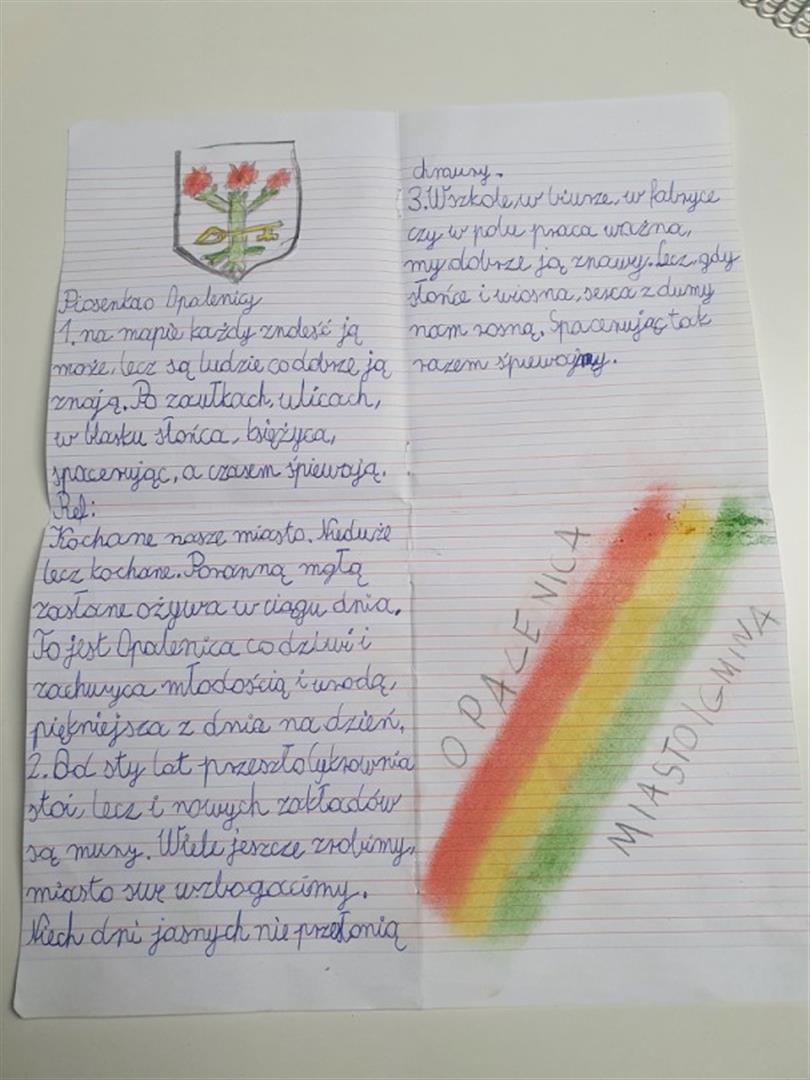 Piosenka o Opalenicy
1. na mapie każdy zndeść ją
może, lecz są ludzie co dobrze ją
znają. Po zaułkach, ulicach,
w blasku słońca, księżyca,
spacerując, a czasem śpiewają.
Ref:
Kochane nasze miasto. Nieduże
lecz kochane. Poranną mgłą
zasłane ożywa w ciągu dnia.
To jest Opalenica co dziwi i
zachwyca młodością i urodą,
piękniejsza z dnia na dzień.
2. Od sty lat przeszło cykrownia
stoi, lecz i nowych zakładów
są mury. Wiele jeszcze zrobimy,
miasto swe wzbogacimy.
Niech dni jasnych nie przełonią
chmury.
3. W szkole, w biurze, w fabryce
czy w polu praca ważna,
my dobrze ją znamy. Lecz, gdy
słońce i wiosna, serca z dumy
nam rosną. Spacerując tak
razem śpiewajmy.
OPALENICA
MIASTO/GMINA